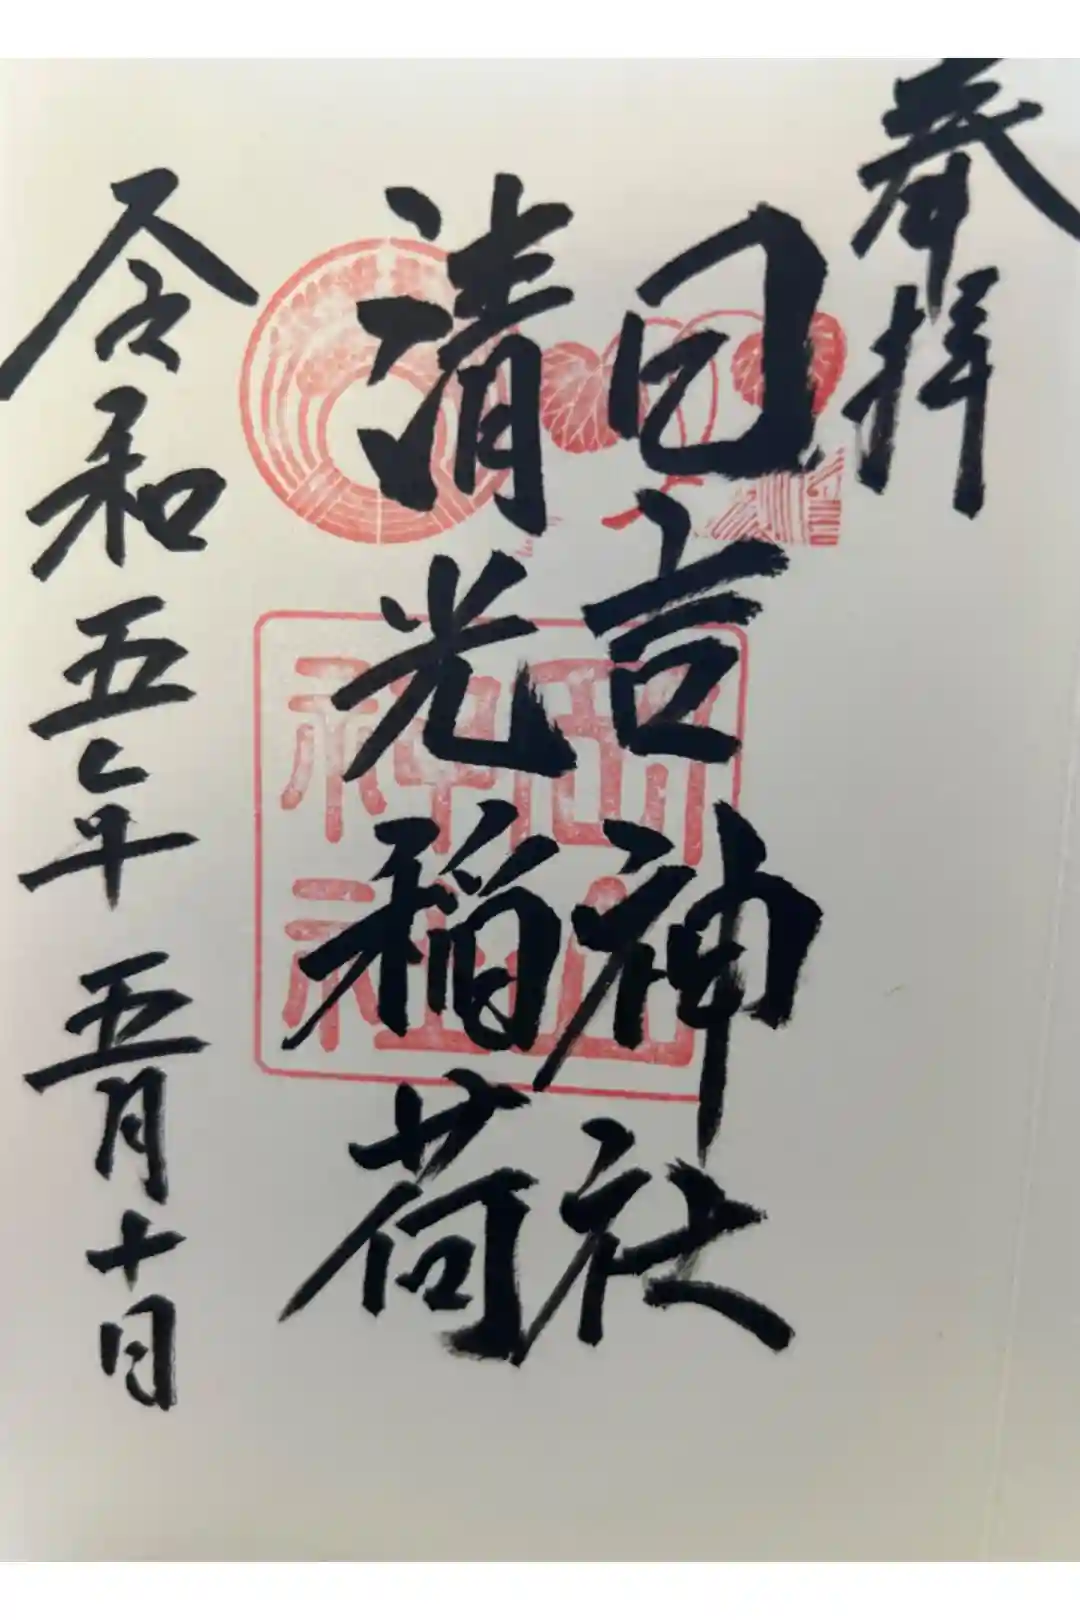 奉拝
日吉神社
清光稲荷
令和五年五月十日
岡山
神社